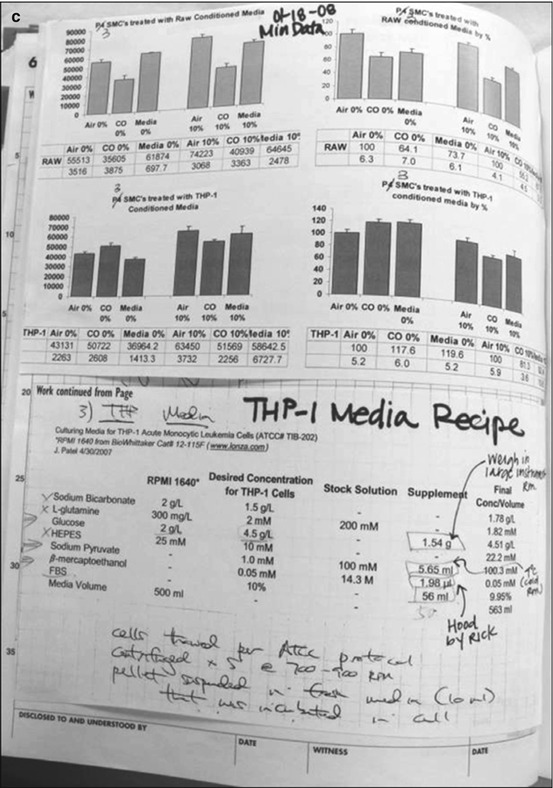 C
01-18-08
Min Data
P3 SMC's treated with Raw Conditioned Media
90000
80000
70000
60000
50000
40000
30000
20000
10000
0
Air 0% CO 0% Media 0% Air 10% CO 10% Media 10%
Air 0% CO 0% Media 0% Air 10% CO 10% Media 10%
RAW 55513 35605 61874 74223 40939 64645
3516 3875 697.7 3068 3363 2478
SMC's treated with
RAW conditioned Media by %
120
100
80
60
40
20
0
Air 0% CO 0% Media 0% Air 10% CO 10% Media 10%
Air 0% CO 0% Media 0% Air 10% CO 10%
RAW 100 64.1 73.7 100
6.3 7.0 6.1 4.1
3
SMC's treated with THP-1
Conditioned Media
80000
70000
60000
50000
40000
30000
20000
10000
0
Air 0% CO 0% Media 0% Air 10% CO 10% Media 10%
THP-1 Air 0% CO 0% Media 0% Air 10% CO 10% Media 10%
43131 50722 36964.2 63450 51569 58642.5
2263 2608 1413.3 3732 2256 6727.7
3
SMC's treated with THP-1
conditioned media by %
140
120
100
80
60
40
20
0
Air 0% CO 0% Media 0% Air 10% CO 10% Media 10%
THP-1 Air 0% CO 0% Media 0% Air 10% CO 10%
100 117.6 119.6 100
5.2 6.0 5.2 5.9
Work continued from Page
3) THP Media
THP-1 Media Recipe
Culturing Media for THP-1 Acute Monocytic Leukemia Cells (ATCC# TIB-202)
*RPMI 1640 from BioWhittaker Cat# 12-115F (www.lonza.com)
J. Patel 4/30/2007
Weigh in
large instrument
rm.
RPMI 1640* Desired Concentration for THP-1 Cells Stock Solution Supplement Final Conc/Volume
Sodium Bicarbonate 2 g/L 1.5 g/L - - 1.78 g/L
L-glutamine 300 mg/L 2 mM 200 mM - 1.82 mM
Glucose 2 g/L 4.5 g/L - 1.54 g 4.51 g/L
HEPES 25 mM 10 mM - - 22.2 mM
Sodium Pyruvate - 1.0 mM 100 mM 5.65 ml 100.3 mM
β-mercaptoethanol - 0.05 mM 14.3 M 1.98 μl 0.05 mM
FBS - 10% - 56 ml 9.95%
Media Volume 500 ml - 563 ml
(cold
Rm)
Hood
by Rick
cells thawed per ATCC protocol
centrifuged x 5 @ 700-900 RPM
pellet suspended in fresh media (10 ml)
that was incubated in cell
DISCLOSED TO AND UNDERSTOOD BY
DATE
WITNESS
DATE
5
10
5
20
25
30
35